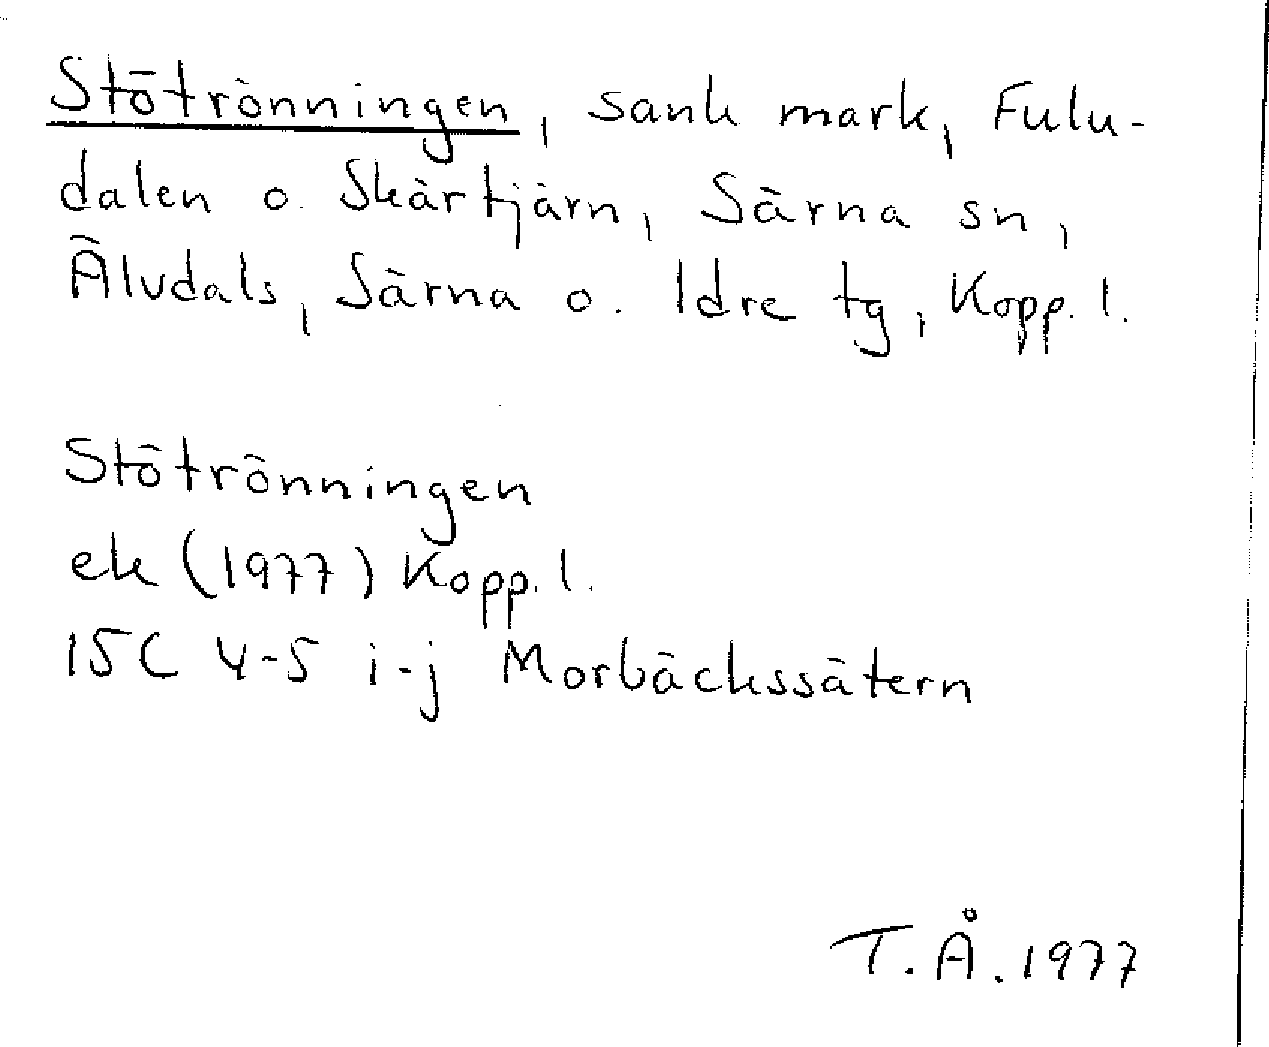 Stötrönningen, sank mark, Fulu-
dalen o. Skärtjärn, Särna sn,
Älvdals, Särna o. Idre tg, Kopp. l.
Stötrönningen
ek (1977) Kopp. l.
15C 4-5 i-j Morbäckssätern
T.Å. 1977